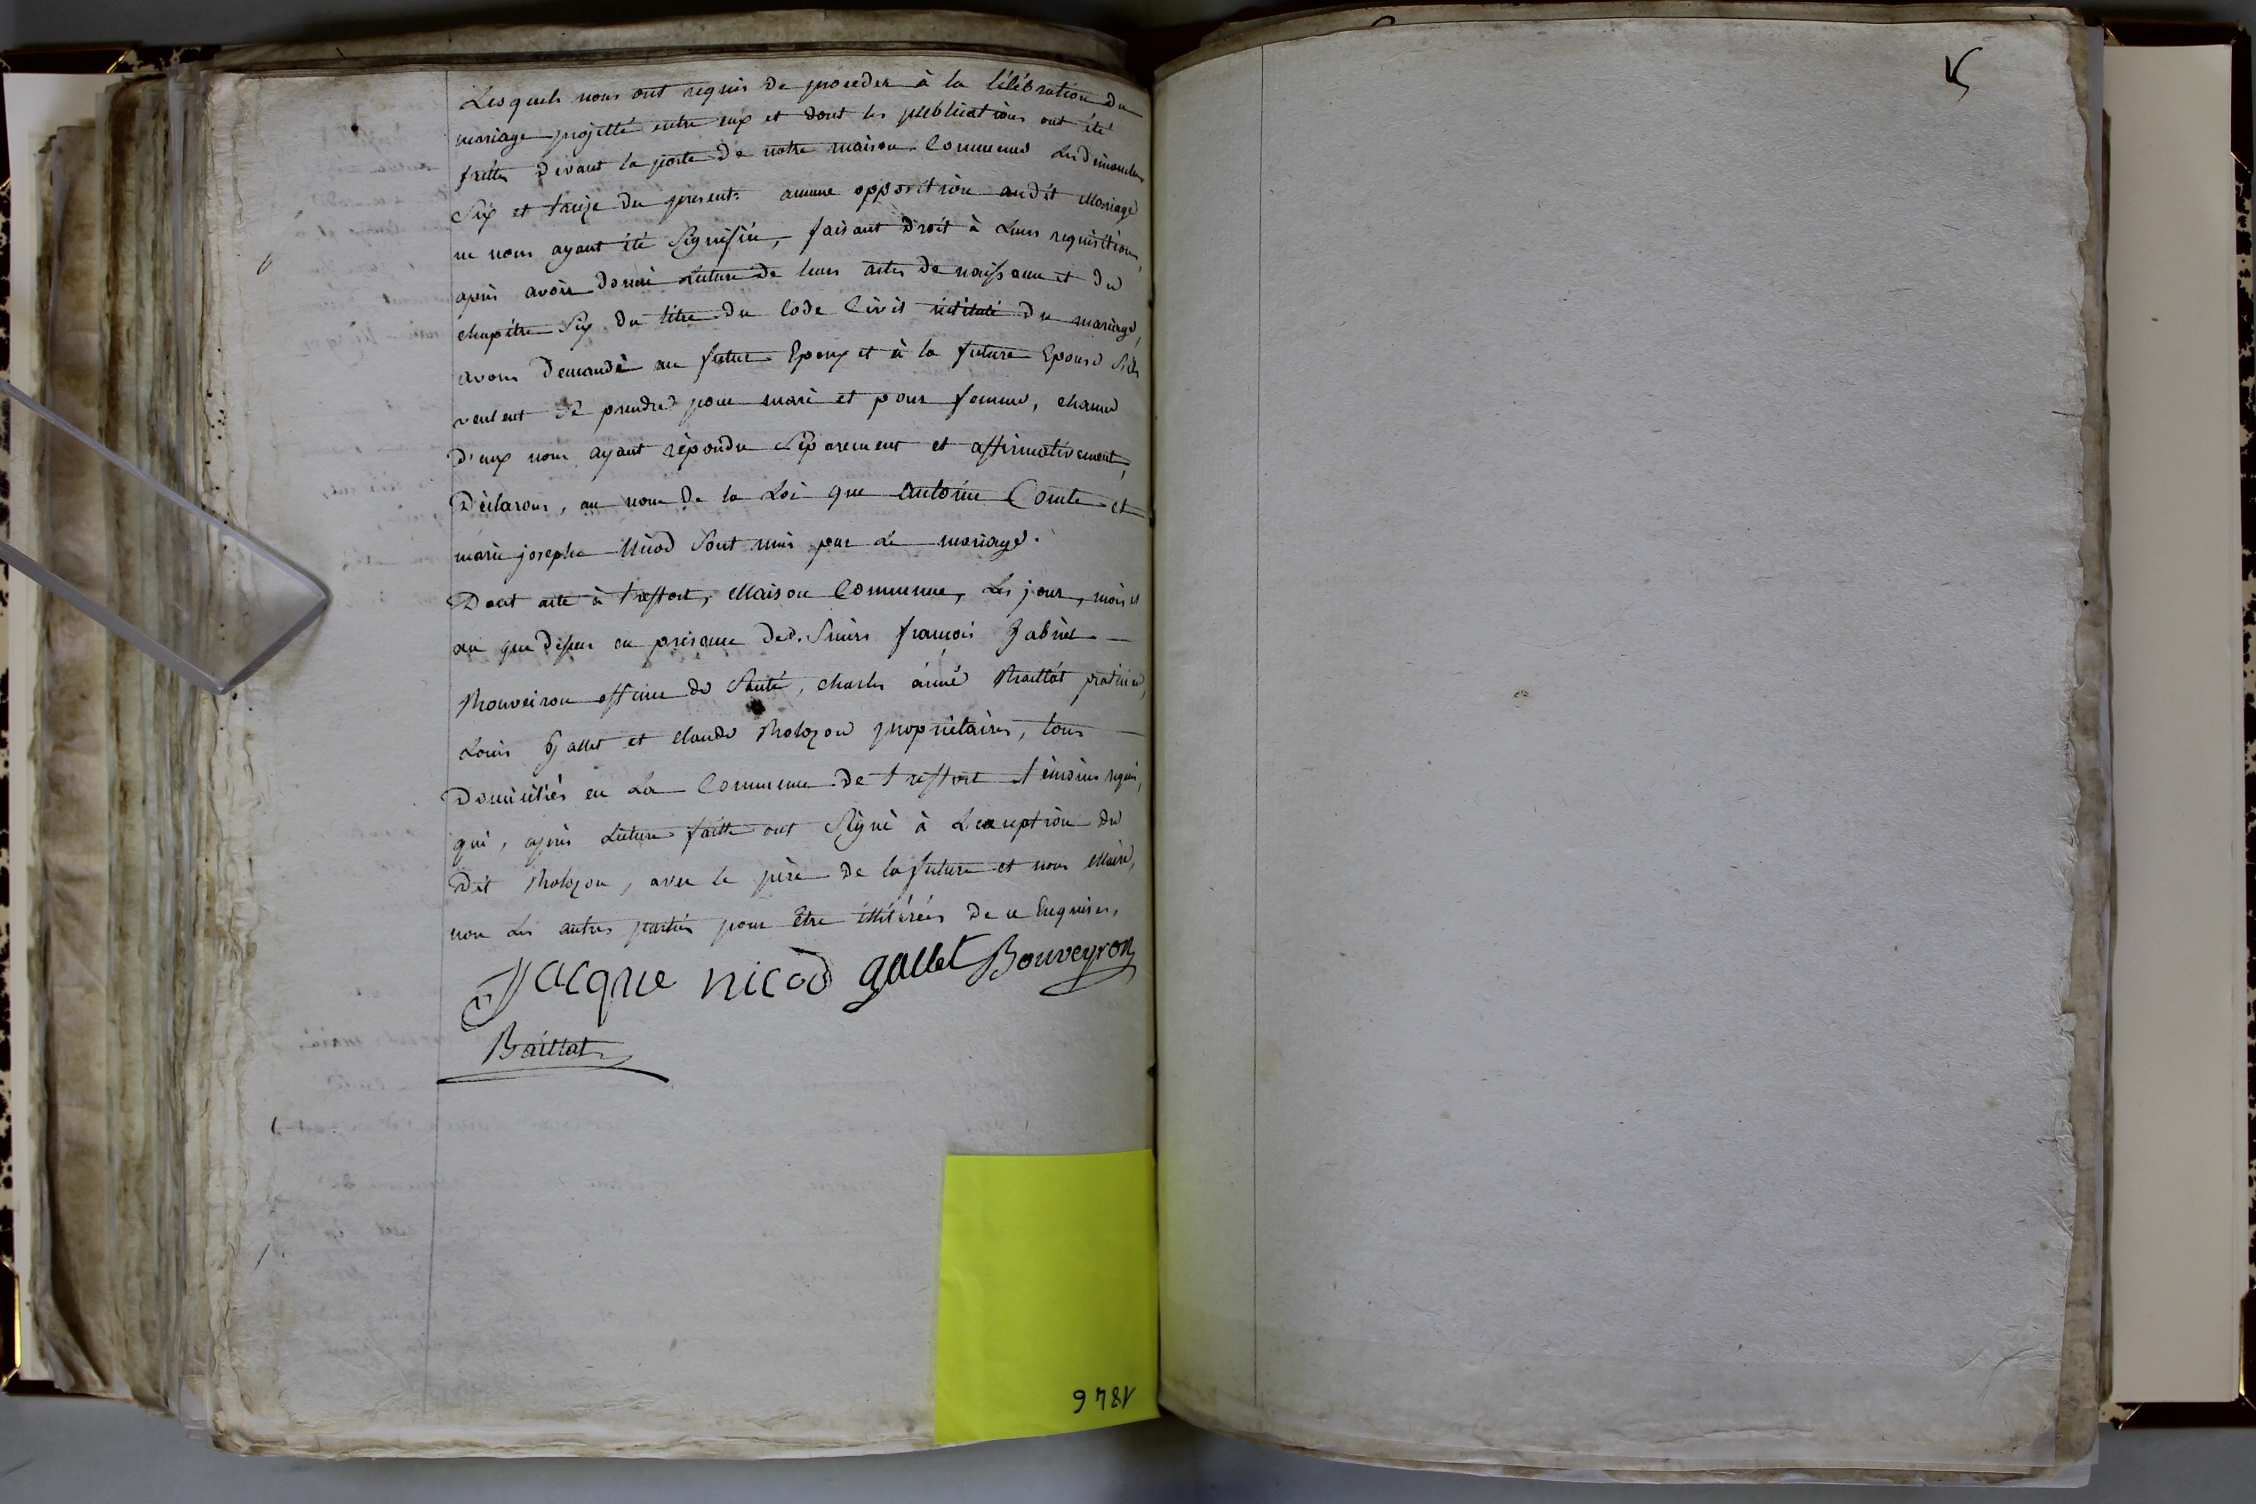 Lesquels nous ont requis de proceder à la Célébration du
mariage projetté entre eux et dont les publications ont été
faittes devant la porte de notre maison Commune Les dimanches
Six et treize du present. aucune opposition audit Mariage
ne nous ayant été Signifiée, faisant droit à Leurs requisitions,
après avoir donné Lecture de leurs actes de naissance et du
chapitre Six du titre du Code Civil intitulé du mariage,
avons demandé au futur Epoux et à la future Epouse S'ils
veulent se prendre pour mari et pour femme, chacun
d'eux nous ayant répondu Séparement et affirmativement,
Déclarons, au nom de la Loi que antoine Comte et
marie josephe Nicod Sont unis par Le mariage.
Dont acte à treffort, Maison Commune, Les jour, mois et
an que dessus en présence des Srs françois Gabriel
Bouveiron officier de Santé, charles aimé Baillat praticien,
Louis Gallet et claude Bolozon propriétaires, tous
Domiciliés en La Commune de treffort témoins requis,
qui, après Lecture faitte ont Signé à L'exception du
dit Bolozon, avec le père de la future et nous Maire,
non Les autres parties pour Être illitérées de ce Enquises,
Jacque nicod gallet Bouveyron
Baillat
1846